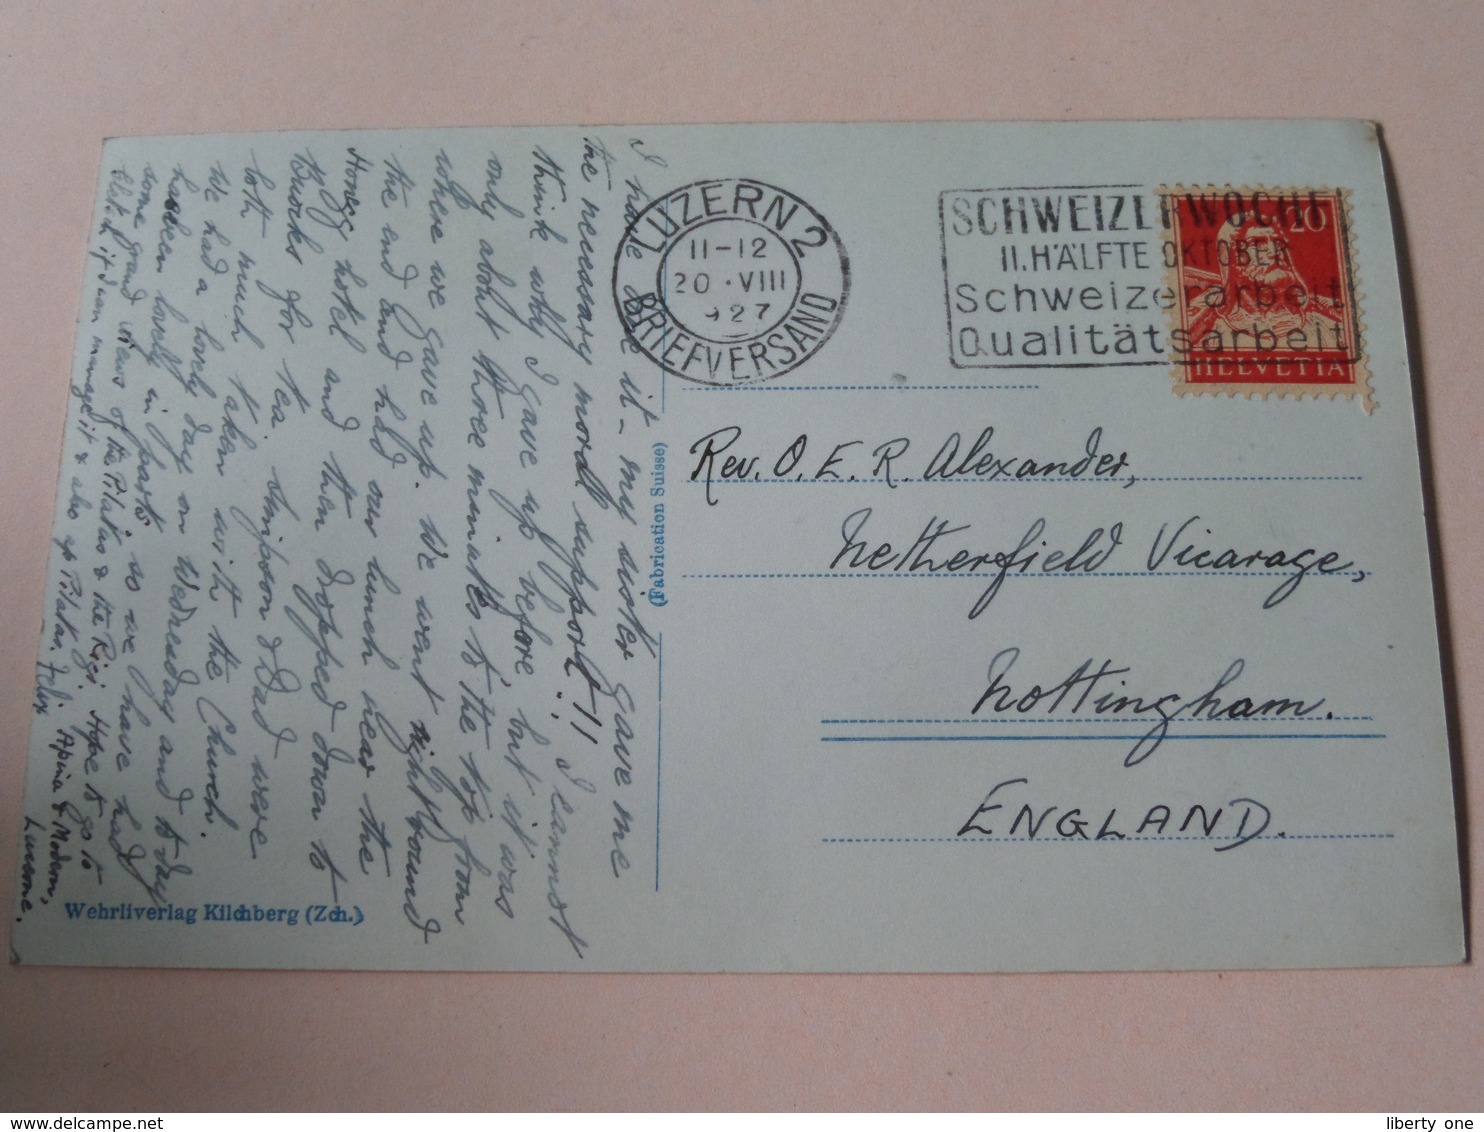 I have done it - my sister gave me
the necessary morall support!! I cannot
think why I gave up before, but it was
only about three minutes to the top from
where we gave up. We went right round
the end and had our lunch near the
Honegg hotel and then dropped down to
for tea. Simpson & Dad were
both much taken with the Church.
We had a lovely day on Wednesday and to day
has been lovely in parts, so we have had
some grand views of the Pilatus & the Rigi. Hope to go to
if Jean manage it & also up Pilatus. Felix
Lucerne.
LUZERN 2
11-12
20·VIII
927
BRIEFVERSAND
SCHWEIZERWOCHE
II. HÄLFTE OKTOBER
Schweizerarbeit
Qualitätsarbeit
20
HELVETIA
Rev. O. E. R. Alexander,
Netherfield Vicarage,
Nottingham.
ENGLAND.
(Fabrication Suisse)
Wehrliverlag Kilchberg (Zch.)
liberty one